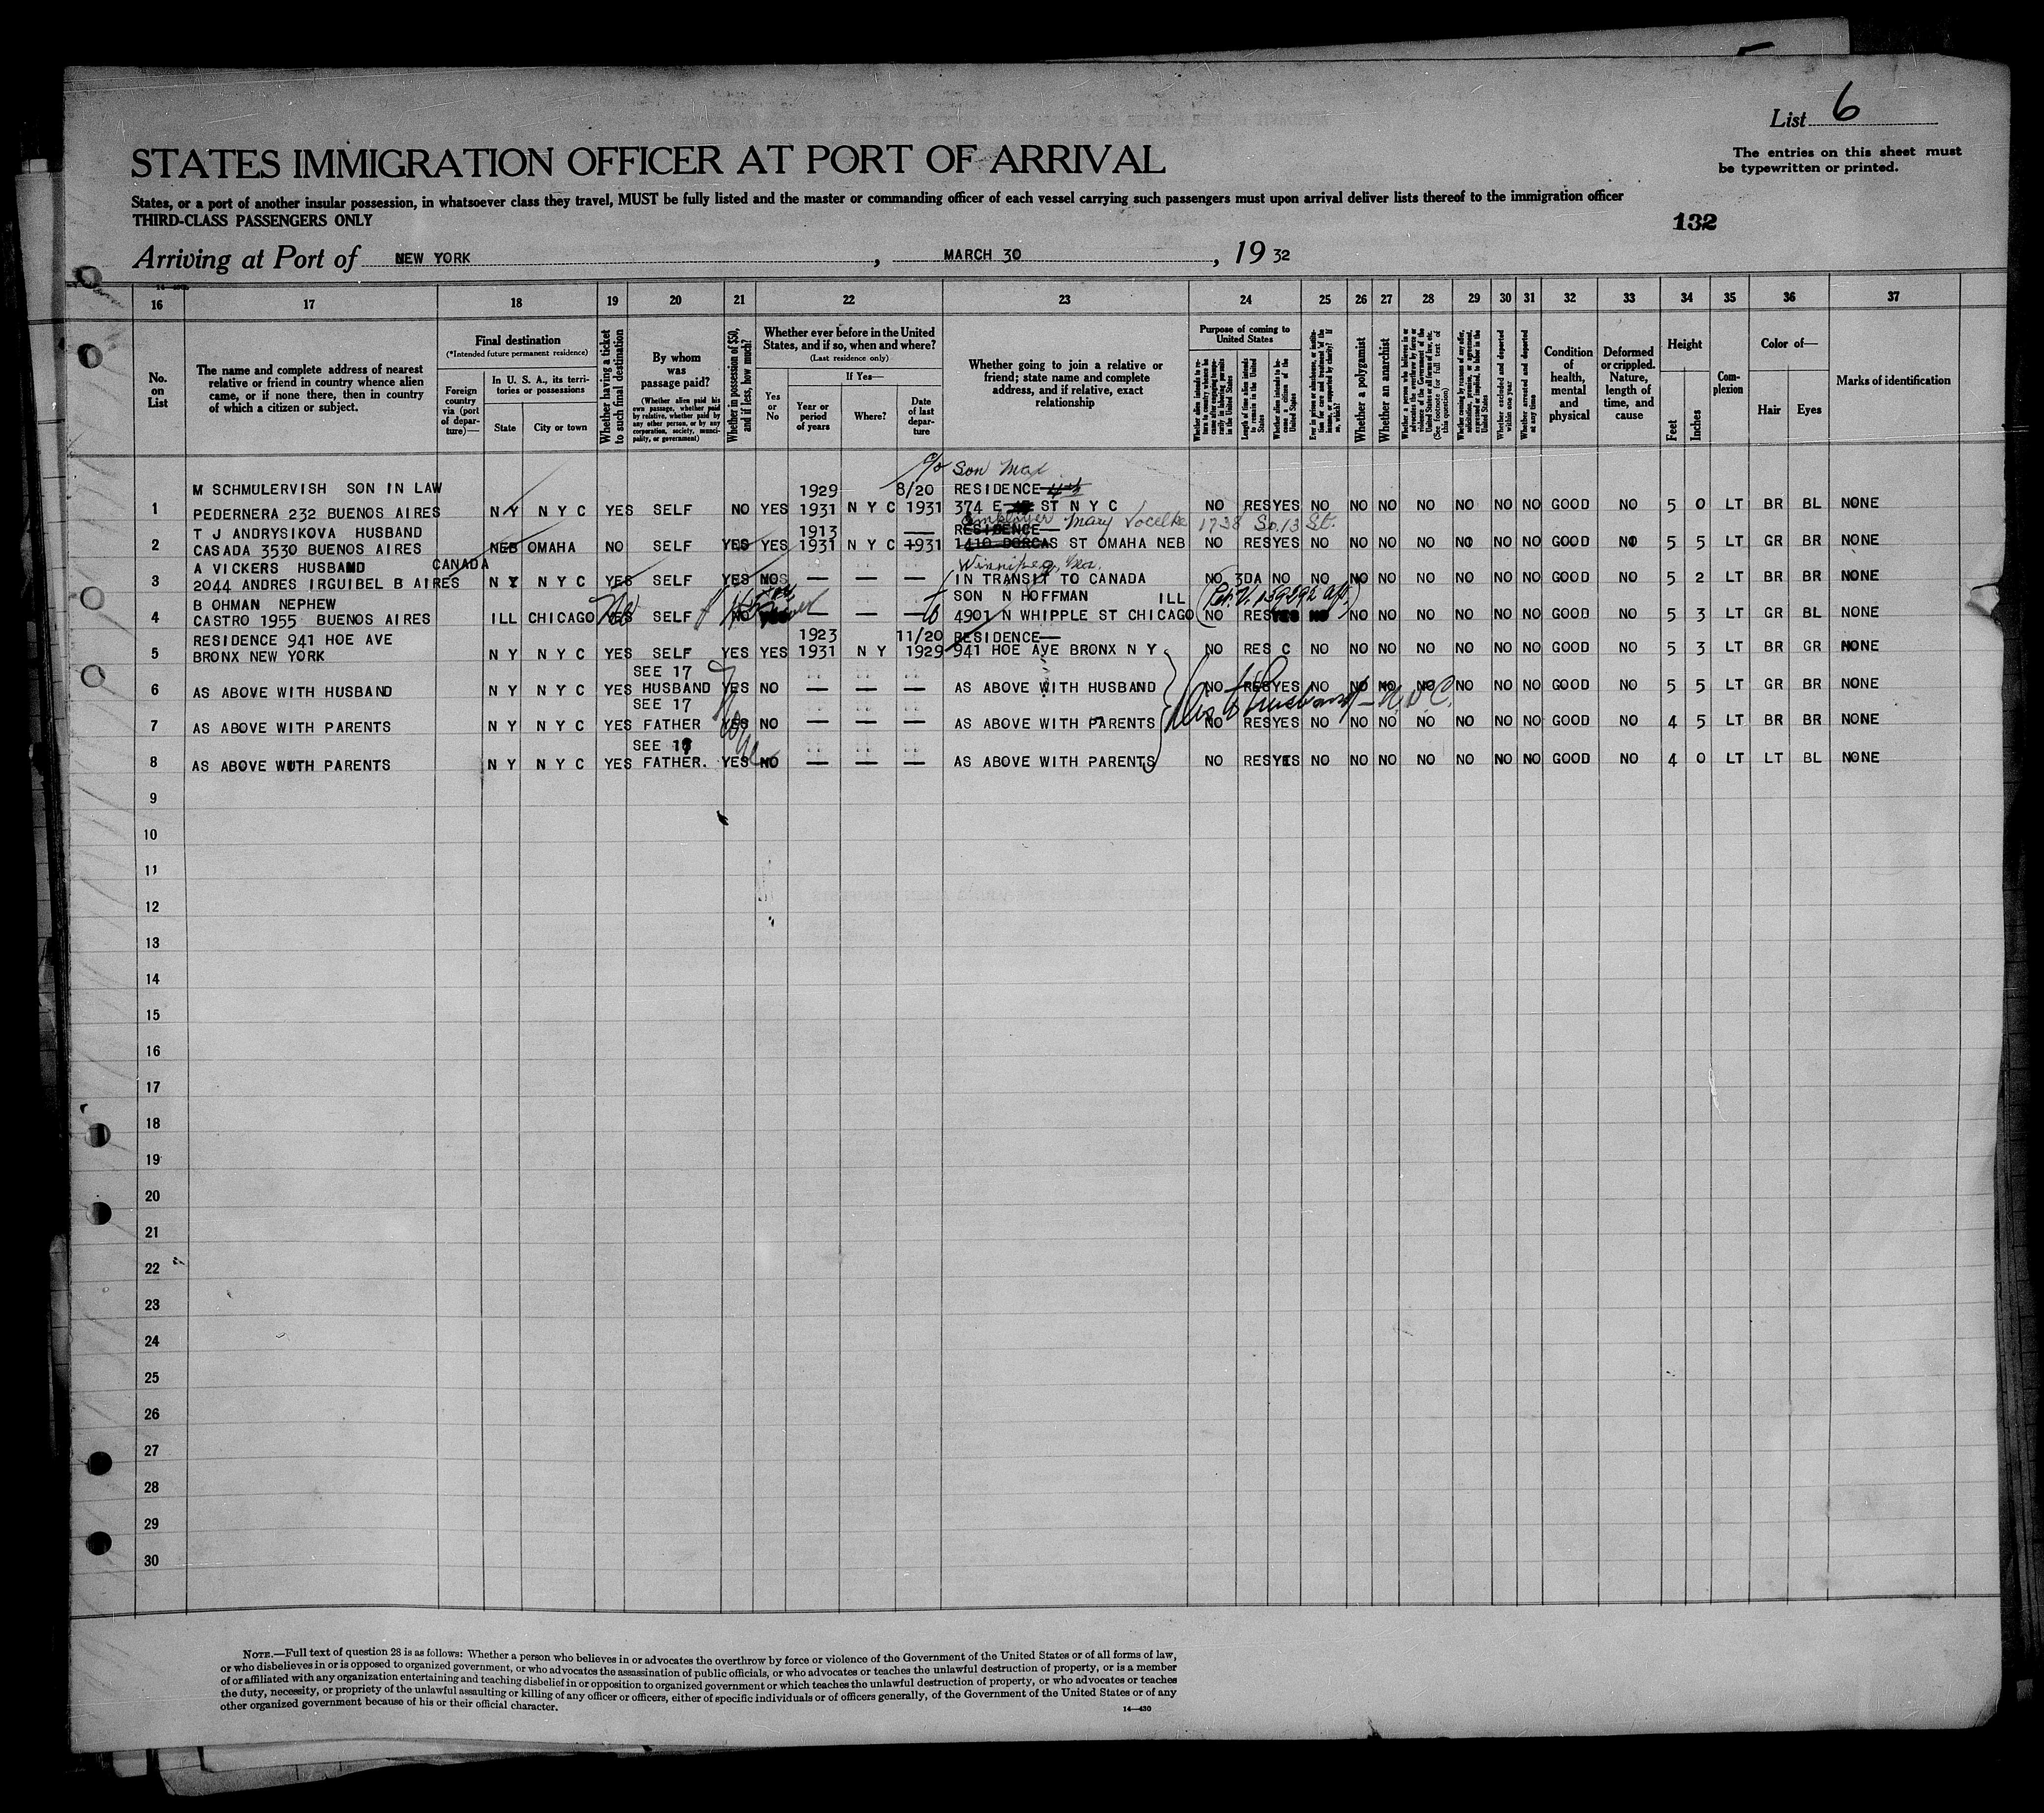 List 6
STATES IMMIGRATION OFFICER AT PORT OF ARRIVAL
The entries on this sheet must
be typewritten or printed.
States, or a port of another insular possession, in whatsoever class they travel, MUST be fully listed and the master or commanding officer of each vessel carrying such passengers must upon arrival deliver lists thereof to the immigration officer
THIRD-CLASS PASSENGERS ONLY
132
Arriving at Port of NEW YORK, MARCH 30, 1932
16 17 18 19 20 21 22 23 24 25 26 27 28 29 30 31 32 33 34 35 36 37
No. on List
The name and complete address of nearest relative or friend in country whence alien came, or if none there, then in country of which a citizen or subject.
Final destination
(*Intended future permanent residence)
Foreign country via (port of departure)—
In U. S. A., its territories or possessions
State
City or town
Whether having a ticket to such final destination
By whom was passage paid?
(Whether alien paid his own passage, whether paid by relative, whether paid by any other person, or by any corporation, society, municipality, or government)
Whether in possession of $50, and if less, how much?
Whether ever before in the United States, and if so, when and where?
(Last residence only)
Yes or No
If Yes—
Year or period of years
Where?
Date of last departure
Whether going to join a relative or friend; state name and complete address, and if relative, exact relationship
Purpose of coming to United States
Length of time alien intends to remain in the United States
Whether alien intends to become a citizen of the United States
Whether a polygamist
Whether an anarchist
(See footnote for full text of this question)
Whether arrested and deported at any time
Condition of health, mental and physical
Deformed or crippled. Nature, length of time, and cause
Height
Feet
Inches
Complexion
Color of—
Hair
Eyes
Marks of identification
c/o Son Max
M SCHMULERVISH SON IN LAW 1929 8/20 RESIDENCE
1 PEDERNERA 232 BUENOS AIRES N Y N Y C YES SELF NO YES 1931 N Y C 1931 374 E ST N Y C NO RES YES NO NO NO NO NO NO NO GOOD NO 5 0 LT BR BL NONE
Employer Mary Vocelke 1738 So. 13 St.
T J ANDRYSIKOVA HUSBAND 1913 — RESIDENCE—
2 CASADA 3530 BUENOS AIRES NEB OMAHA NO SELF YES YES 1931 N Y C 1931 1410 DORCAS ST OMAHA NEB NO RES YES NO NO NO NO NO NO NO GOOD NO 5 5 LT GR BR NONE
A VICKERS HUSBAND CANADA Winnipeg,
3 2044 ANDRES IRGUIBEL B AIRES N Y N Y C YES SELF YES NO — — — IN TRANSIT TO CANADA NO 3DA NO NO NO NO NO NO NO NO GOOD NO 5 2 LT BR BR NONE
B OHMAN NEPHEW SON N HOFFMAN ILL
4 CASTRO 1955 BUENOS AIRES ILL CHICAGO YES SELF NO — — 4901 N WHIPPLE ST CHICAGO NO RES YES NO NO NO NO NO NO NO GOOD NO 5 3 LT GR BL NONE
RESIDENCE 941 HOE AVE 1923 11/20 RESIDENCE—
5 BRONX NEW YORK N Y N Y C YES SELF YES YES 1931 N Y 1929 941 HOE AVE BRONX N Y NO RES C NO NO NO NO NO NO NO GOOD NO 5 3 LT BR GR NONE
SEE 17
6 AS ABOVE WITH HUSBAND N Y N Y C YES HUSBAND YES NO — — — AS ABOVE WITH HUSBAND NO RES YES NO NO NO NO NO NO NO GOOD NO 5 5 LT GR BR NONE
SEE 17
7 AS ABOVE WITH PARENTS N Y N Y C YES FATHER YES NO — — — AS ABOVE WITH PARENTS NO RES YES NO NO NO NO NO NO NO GOOD NO 4 5 LT BR BR NONE
SEE 17
8 AS ABOVE WUTH PARENTS N Y N Y C YES FATHER. YES NO — — — AS ABOVE WITH PARENTS NO RES YES NO NO NO NO NO NO NO GOOD NO 4 0 LT LT BL NONE
9
10
11
12
13
14
15
16
17
18
19
20
21
22
23
24
25
26
27
28
29
30
NOTE.—Full text of question 28 is as follows: Whether a person who believes in or advocates the overthrow by force or violence of the Government of the United States or of all forms of law,
or who disbelieves in or is opposed to organized government, or who advocates the assassination of public officials, or who advocates or teaches the unlawful destruction of property, or is a member
of or affiliated with any organization entertaining and teaching disbelief in or opposition to organized government or which teaches the unlawful destruction of property, or who advocates or teaches
the duty, necessity, or propriety of the unlawful assaulting or killing of any officer or officers, either of specific individuals or of officers generally, of the Government of the United States or of any
other organized government because of his or their official character.
14—430